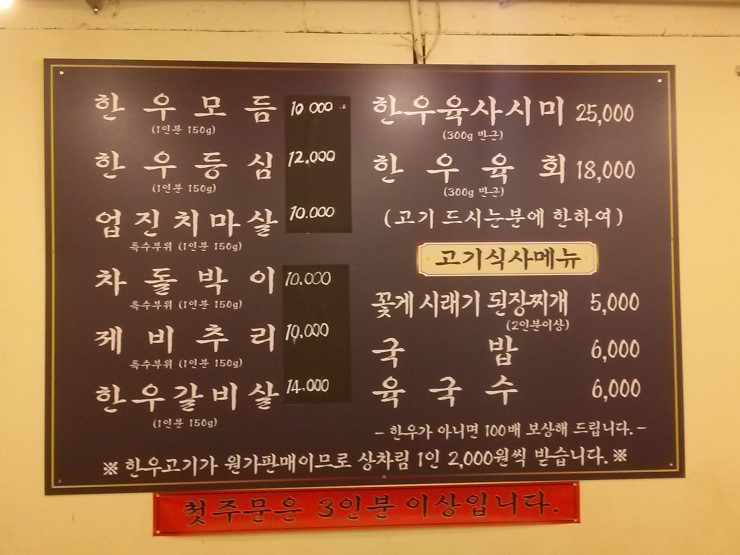 한우모듬 10,000
(1인분 150g)
한우등심 12,000
(1인분 150g)
업진치마살 10,000
특수부위 (1인분 150g)
차돌박이 10,000
특수부위 (1인분 150g)
제비추리 10,000
특수부위 (1인분 150g)
한우갈비살 14,000
(1인분 150g)
한우육사시미 25,000
(300g 반근)
한우육회 18,000
(300g 반근)
(고기 드시는분에 한하여)
고기식사메뉴
꽃게 시래기 된장찌개 5,000
(2인분이상)
국밥 6,000
육국수 6,000
- 한우가 아니면 100배 보상해 드립니다. -
※ 한우고기가 원가판매이므로 상차림 1인 2,000원씩 받습니다. ※
첫주문은 3인분 이상입니다.